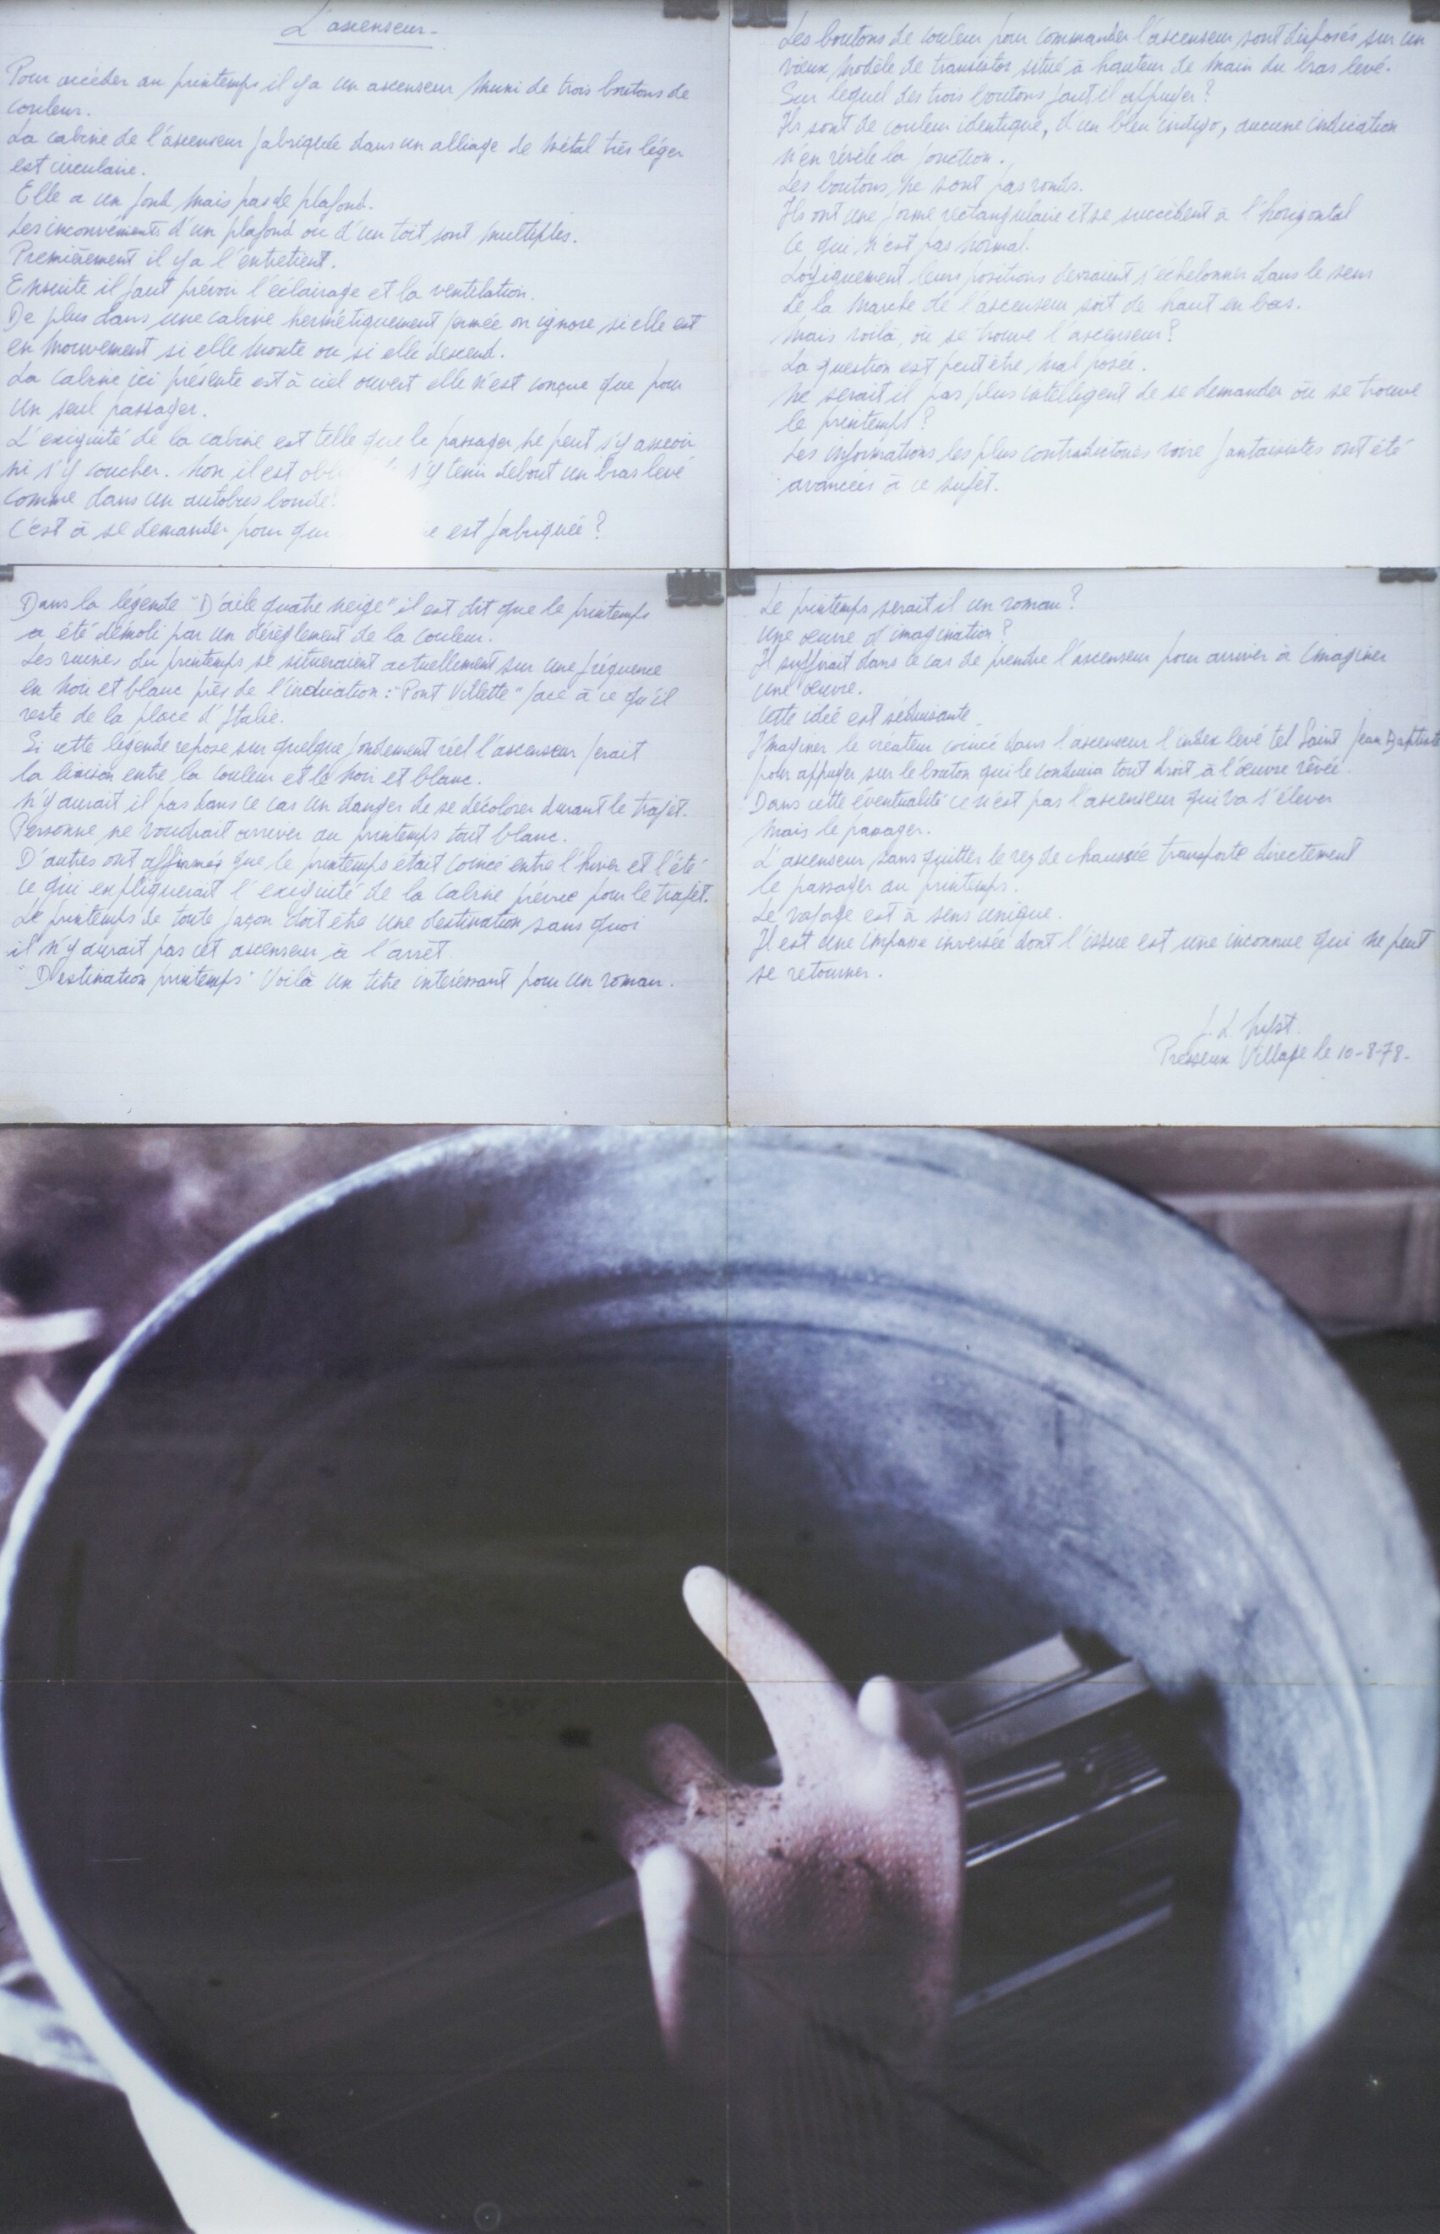 L'ascenseur.
Pour accéder au printemps il y a un ascenseur muni de trois boutons de
couleur.
La cabine de l'ascenseur fabriquée dans un alliage de métal très léger
est circulaire.
Elle a un fond mais pas de plafond.
Les inconvénients d'un plafond ou d'un toit sont multiples.
Premièrement il y a l'entretient.
Ensuite il faut prévoir l'éclairage et la ventilation.
De plus dans une cabine hermétiquement fermée on ignore si elle est
en mouvement si elle monte ou si elle descend.
La cabine ici présente est à ciel ouvert elle n'est conçue que pour
un seul passager.
L'exiguité de la cabine est telle que le passager ne peut s'y asseoir
ni s'y coucher. Non il est s'y tenir debout un bras levé
comme dans un autobus bondé!
C'est à se demander pour qui est fabriquée?
Les boutons de couleur pour commander l'ascenseur sont disposés sur un
vieux modèle de transistor situé à hauteur de main du bras levé.
Sur lequel des trois boutons faut il appuyer?
Ils sont de couleur identique, d'un bleu indigo, aucune indication
n'en révèle la fonction.
Les boutons ne sont pas ronds.
Ils ont une forme rectangulaire et se succèdent à l'horizontal
ce qui n'est pas normal.
Logiquement leurs positions devraient s'échelonner dans le sens
de la marche de l'ascenseur soit de haut en bas.
Mais voilà, où se trouve l'ascenseur?
La question est peut être mal posée.
Ne serait il pas plus intelligent de se demander où se trouve
le printemps?
Les informations les plus contradictoires voire fantaisistes ont été
avancées à ce sujet.
Dans la légende "D'aile quatre neige" il est dit que le printemps
a été démoli par un dérèglement de la couleur.
Les ruines du printemps se situeraient actuellement sur une fréquence
en noir et blanc près de l'indication: "Pont Villette" face à ce qu'il
reste de la place d'Italie.
Si cette légende repose sur quelque fondement réel l'ascenseur ferait
la liaison entre la couleur et le noir et blanc.
N'y aurait il pas dans ce cas un danger de se décolorer durant le trajet.
Personne ne voudrait arriver au printemps tout blanc.
D'autres ont affirmés que le printemps était coincé entre l'hiver et l'été
ce qui expliquerait l'exiguité de la cabine prévue pour le trajet.
Le printemps de toute façon doit être une destination sans quoi
il n'y aurait pas cet ascenseur à l'arrêt.
"Destination printemps" Voilà un titre intéressant pour un roman.
Le printemps serait il un roman?
Une œuvre d'imagination?
Il suffirait dans ce cas de prendre l'ascenseur pour arriver à imaginer
une œuvre.
Cette idée est séduisante.
Imaginer le créateur coincé dans l'ascenseur l'index levé tel Saint Jean Baptiste
pour appuyer sur le bouton qui le conduira tout droit à l'œuvre rêvée.
Dans cette éventualité ce n'est pas l'ascenseur qui va s'élever
mais le passager.
L'ascenseur sans quitter le rez de chaussée transporte directement
le passager au printemps.
Le voyage est à sens unique.
Il est une impasse inversée dont l'issue est une inconnue qui ne peut
se retourner.
Presseux Village le 10-8-78.